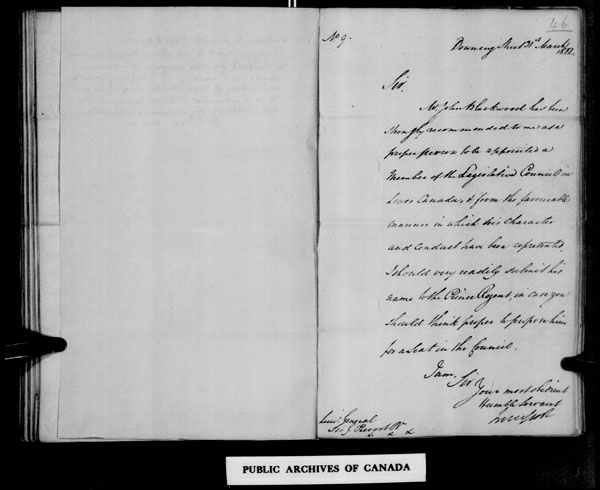 46
No 9.
Downing Street 31st March
1812.
Sir,
Mr. John Blackwood has been
strongly recommended to me as a
proper person to be appointed a
Member of the Legislative Council in
Lower Canada, & from the favourable
manner in which his character
and conduct have been represented,
I should very readily submit his
name to the Prince Regent, in case you
should think proper to propose him
for a Seat in the Council.
I am, Sir,
Your most obedient
Humble Servant
Lieut General
Sir G Prevost Bt
&c &c &c
PUBLIC ARCHIVES OF CANADA